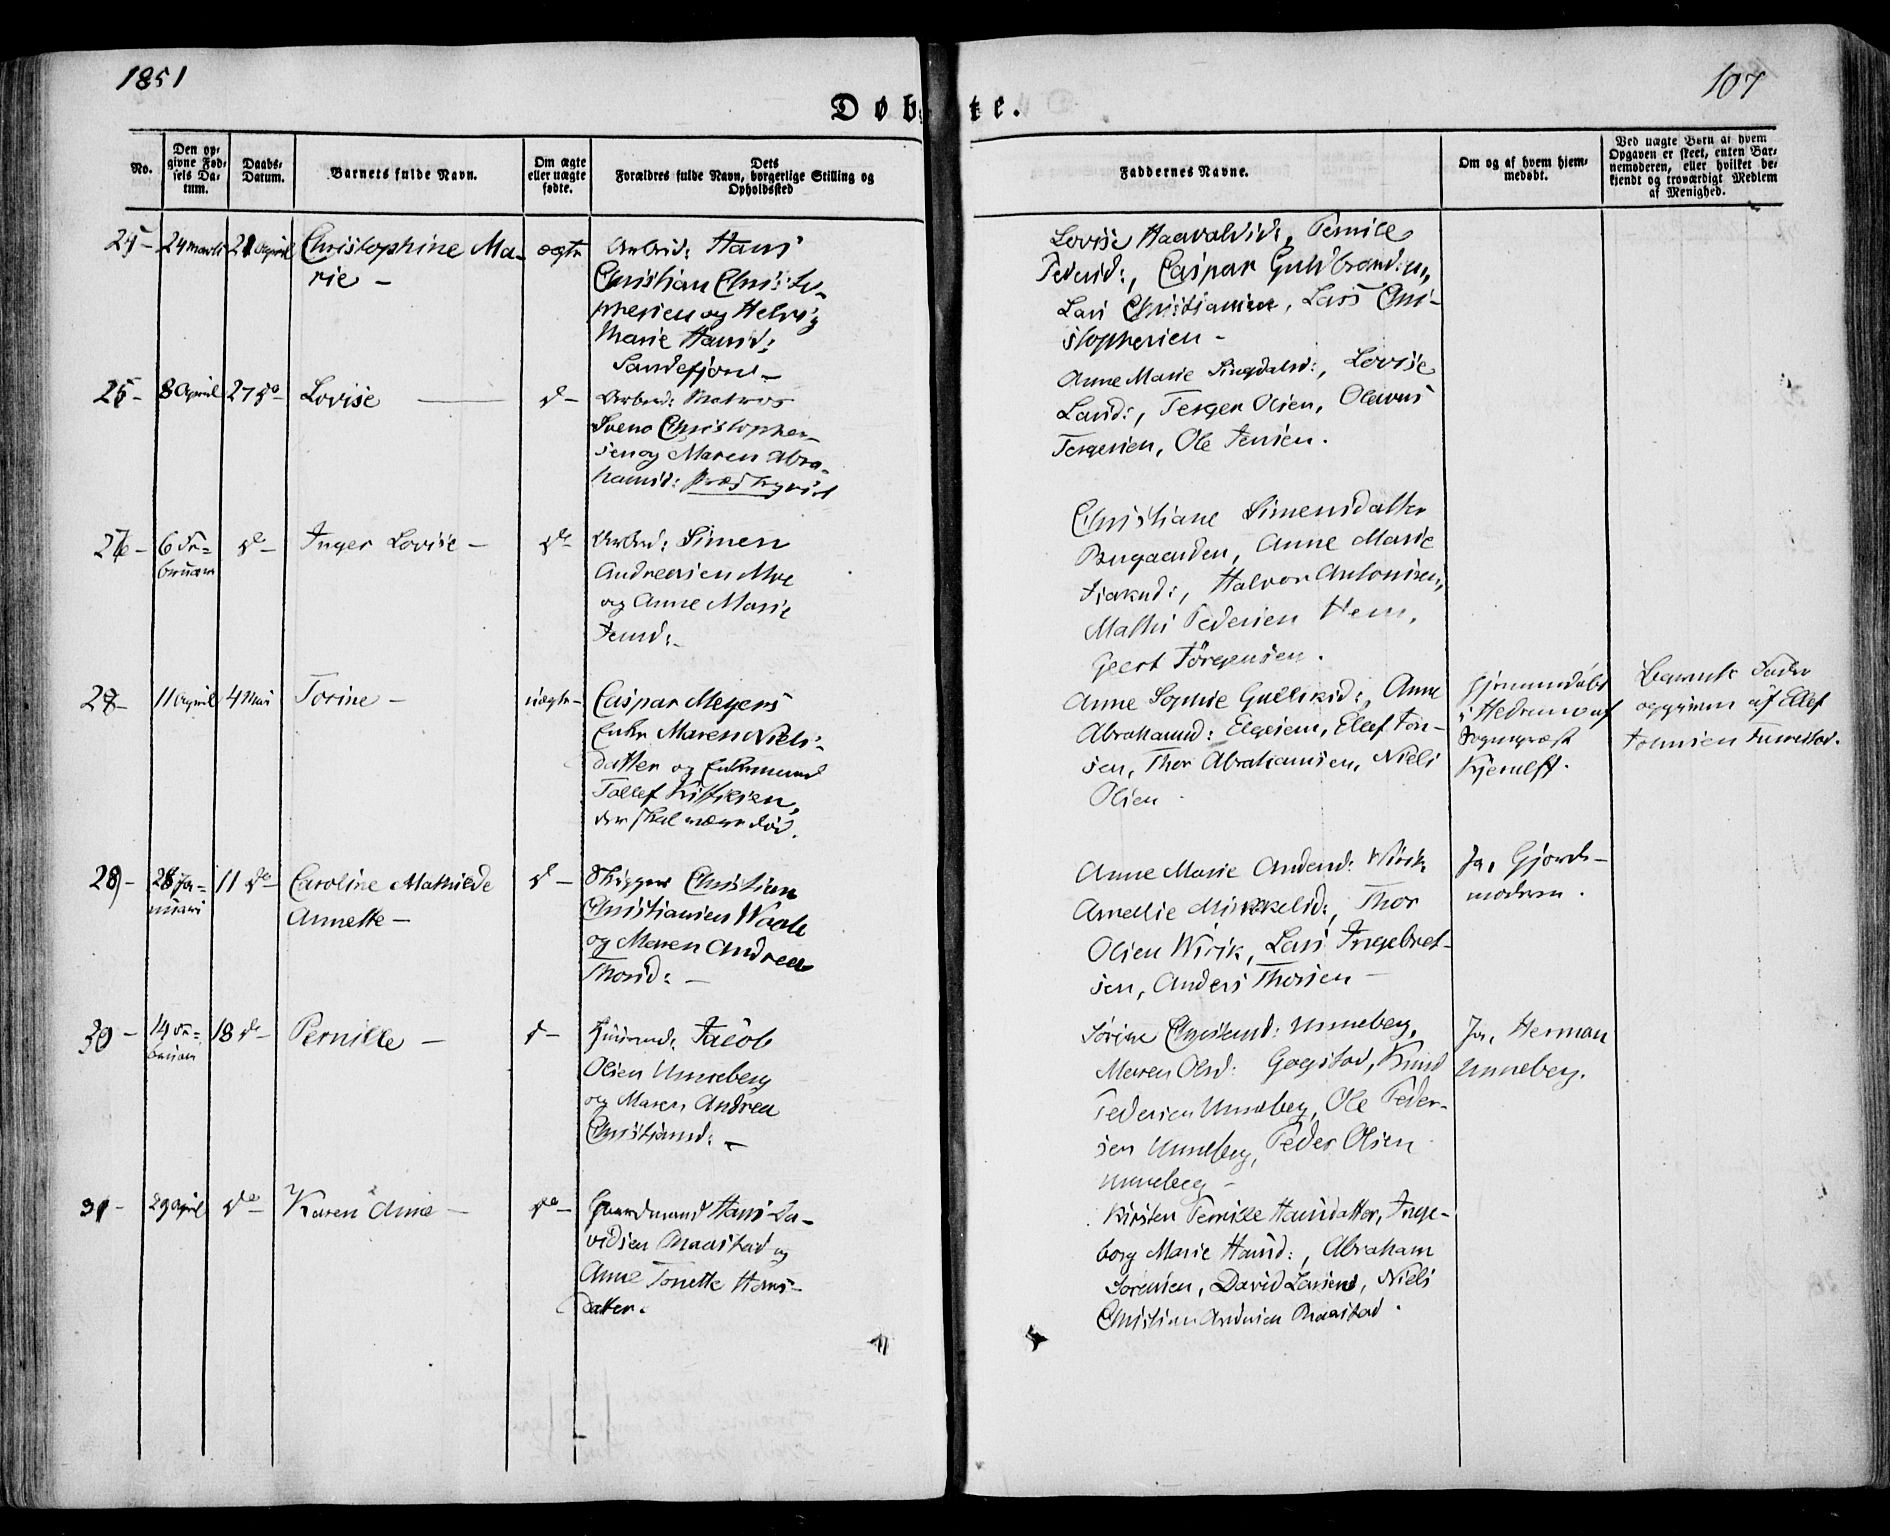 1851
107
Døbte.
No.
Den op-
givne Fød-
sels Da-
tum.
Daabs-
Datum.
Barnets fulde Navn.
Om ægte
eller uægte
fødte.
Dets
Forældres fulde Navn, borgerlige Stilling og
Opholdssted
Faddernes Navne.
Om og af hvem hjem-
medøbt.
Ved uægte Børn af hvem
Opgaven er skeet, enten Bar-
nemoderen, eller hvilket be-
kjendt og troværdigt Medlem
af Menighed.
25- 24 Marts 21 April Christophine Ma-
rie -
ægte
Arbeid: Hans
Christian Christo-
phersen og Helvig
Marie Hansd:
Sandefjord -
Lovise Haavaldsd:, Pernille
Pedersd:, Caspar Guldbrandsen,
Lars Christiansen, Lars Chri-
stophersen -
26- 8 April 27 do Lovise d-
Arbeid: Matros
Svend Christopher-
sen og Maren Abra-
hamsd:
Anne Marie Lovise
Larsd:, Terger Olsen, Olavus
Tergersen, Ole Jensen.
27- 6 Fe-
bruar
do- Inger Lovise - do
Arbeid: Simen
Andreasen Moe
og Anne Marie
Jensd:-
Christiane Simensdatter
Bugaarden, Anne Marie
Isaksd:, Halvor Antonisen,
Mathis Pedersen Hem,
Geert Jörgensen.
28- 11 April 4 Mai Torine - uægte
Caspar Meyers
Enke Maren Niels-
datter og Enkemand
Tollef Kittilsen,
der skal være død.
Anne Sophie Gulliksd:, Anne
Abrahamsd: Elgesem, Ellef Jon-
sen, Thor Abrahamsen, Niels
Olsen
Hjemmedøbt
i Hedrum af
Sogneprest
Kjerulff.
Barnets Fader
opgiven af Ellef
29- 28 Ja-
nuari
11 do- Caroline Mathilde
Annette - d-
Skipper Christian
Christiansen
og Maren Andrea
Thorsd: -
Anne Marie Andersd: Virik,
Amellie Mikkelsd:, Thor
Olsen Wirik, Lars Ingebret-
sen, Anders Thorsen -
Ja, Gjorde-
moderen.
30- 14 Fe-
bruar
18 do- Pernille - d-
Huusmd: Jacob
Olsen Unneberg
og Maren Andrea
Christiansd: -
Sörine Unneberg,
Maren Olsd: Gogstad, Knud
Pedersen Unneberg, Ole Peder-
sen Unneberg, Peder Olsen
Unneberg -
Ja, Herman
Unneberg.
31- 29 April do- Karen Anne - do-
Gaardmand Hans Da-
vidsen Raastad og
Anne Tonette Hans-
datter.
Kirsten Pernille Hansdatter, Inge-
borg Marie Hansd:, Abraham
Sørensen, David Larsen, Niels
Christian Andersen Raastad.